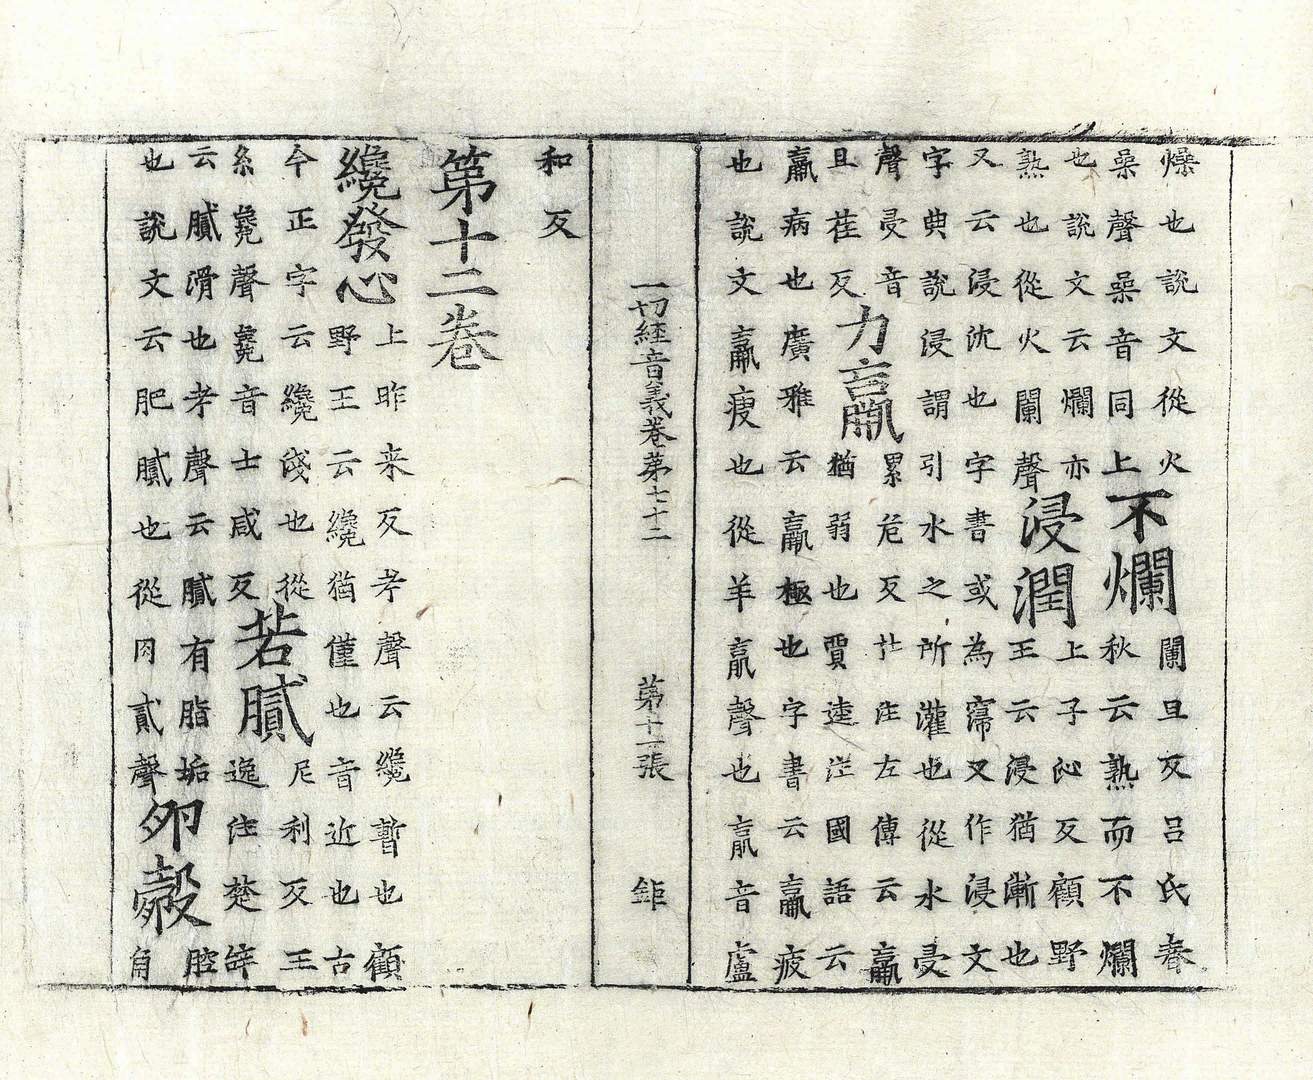 燥也說文從火
喿聲喿音同上
不爛
闌旦反呂氏春
秋云熟而不爛
也說文云爛亦
熟也從火闌聲
浸潤
上子沁反顧野
王云浸猶漸也
又云浸沈也字書或為㝲又作浸文
字典說浸謂引水之所灌也從水㑴
聲㑴音
且荏反
力羸
累危反杜注左傳云羸
猶弱也賈逵注國語云
羸病也廣雅云羸極也字書云羸疲
也說文羸瘦也從羊𦝠聲也𦝠音盧
和反
一切経音義卷第七十二 第十一張 鉅
第十二卷
纔發心
上昨来反考聲云纔暫也顧
野王云纔猶僅也音近也古
今正字云纔淺也從
糸毚聲毚音士咸反
若膩
尼利反王
逸注楚辞
云膩滑也考聲云膩有脂垢
也說文云肥膩也從肉貳聲
卵㲉
腔
角